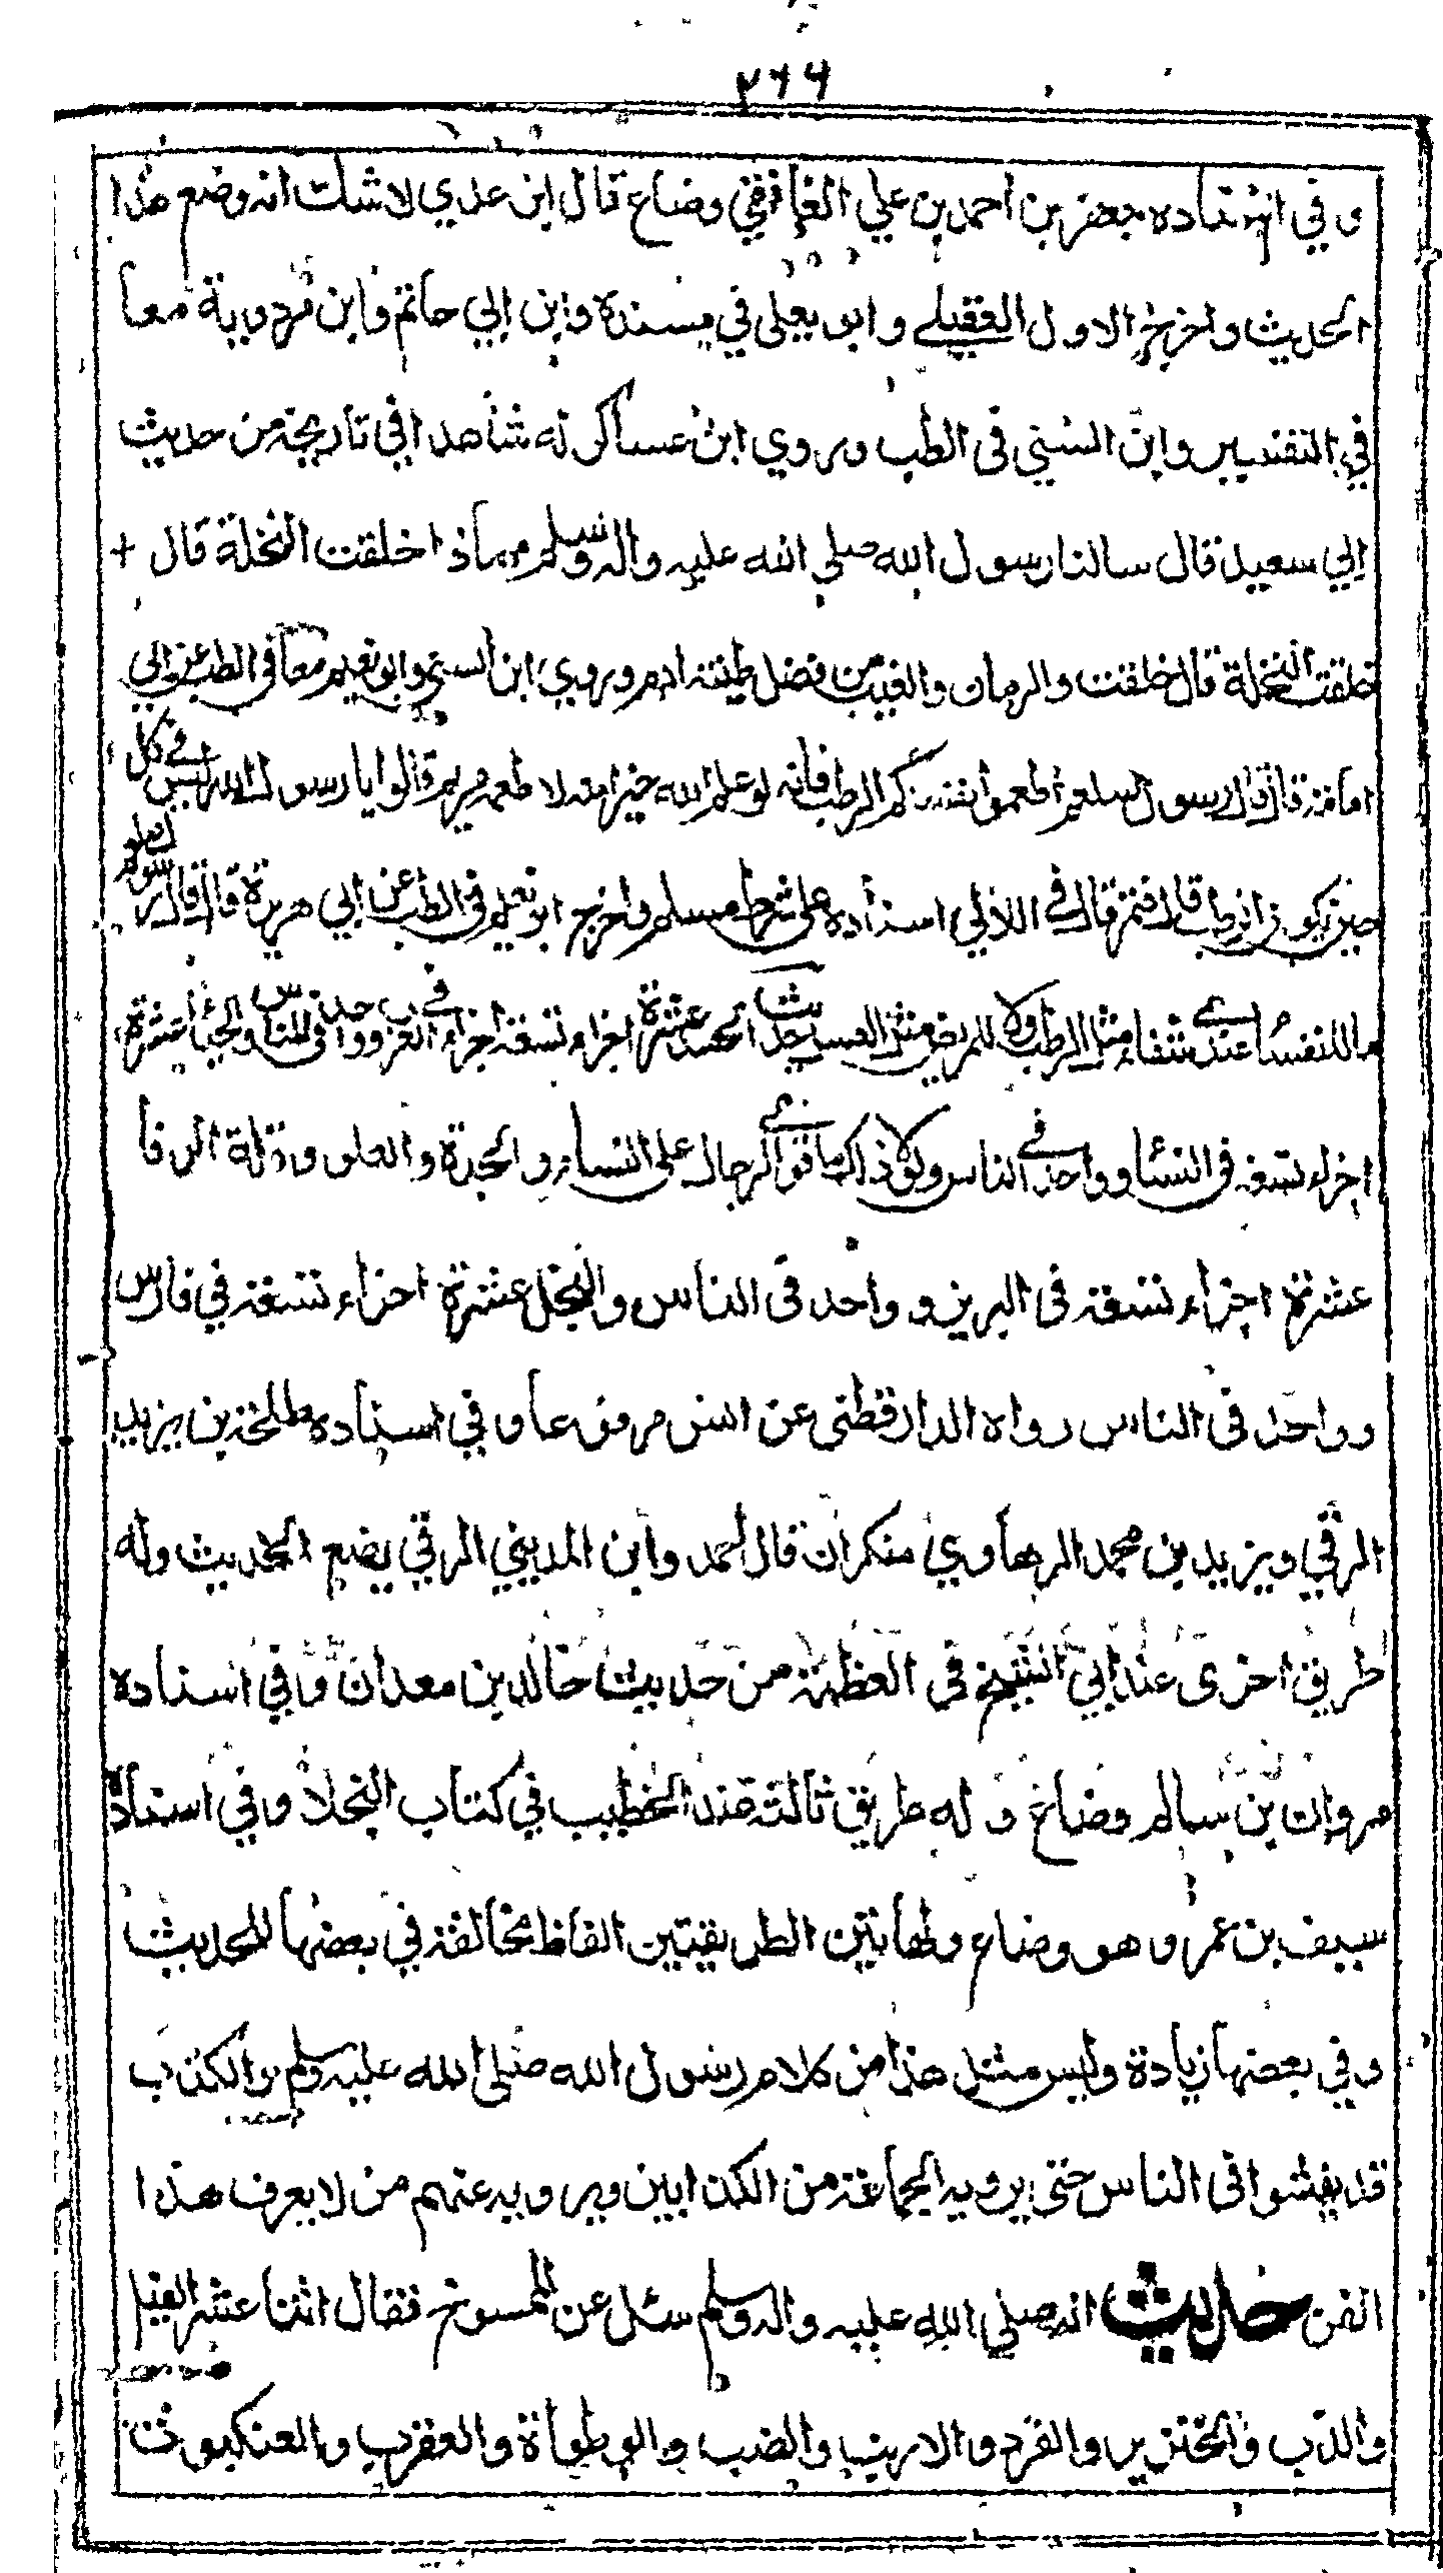 ٢٦٦
و في اسناده جعفر بن احمد بن علي الغافقي وضاع قال ابن عدي لا شك انه وضع هذا
الحديث واخرج الاول العقيلے و ابو يعلى في مسنده وابن ابي حاتم وابن مردوية معا
في التفسير وابن السني فى الطب وروي ابن عساكر له شاهدا في تاريخه من حديث
ابي سعيد قال سالنا رسول الله صلي الله عليه واله وسلم مماذ اخلقت النخلة قال +
خلقت النخلة قال خلقت والرمان والعنب من فضل طينة ادم وروي ابن السني وابو نعيم معا فى الطب عن ابي
امامة قال قال رسول صلعم اطعموا نفساءكم الرطب فانه لو علم الله خيرا منه لا طعمه مريم قالوا يا رسول الله ليس في كل
حين يكون الرطب قال فتمر قال في اللالي اسناده على شرط مسلم واخرج ابو نعيم فى الطب عن ابي هريرة قال قال رسول صلعم
ما للنفساء عندي شفاء مثل الرطب ولا للمريض مثل العسل حديث الحسد عشرة اجزاء تسعة اجزاء في العرب وواحد فى الناس والحياء عشرة
اجزاء تسعة فى النساء وواحد في الناس ولولا ذلك ما قوي الرجال على النساء والحدة والعلو وقلة الوفا
عشرة اجزاء تسعة فى البربر و واحد فى الناس والبخل عشرة اجزاء تسعة في فارس
وواحد فى الناس رواه الدارقطنى عن انس مرفوعا و في اسناده طلحة بن يزيد
الرقي ويزيد بن محمد الرهاوي منكران قال احمد وابن المديني الرقي يضع الحديث وله
طريق اخرى عند ابي الشيخ فى العظمة من حديث خالد بن معدان و في اسناده
مروان بن سالم وضاع و له طريق ثالثة عند الخطيب في كتاب البخلا و في اسناده
سيف بن عمرو هو وضاع ولهاتين الطريقتين الفاظ مخالفة في بعضها للحديث
و في بعضها زيادة وليس مثل هذا من كلام رسول الله صلى الله عليه وسلم والكذب
قد يفشوا فى الناس حتى يرويه الجماعة من الكذابين ويرويه عنهم من لا يعرف هذا
الفن حديث انه صلي الله عليه واله وسلم سئل عن المسوخ فقال اثنا عشر الفيل
والدب والخنزير والقرد و الارنب والضب والوطواة والعقرب والعنكبوت